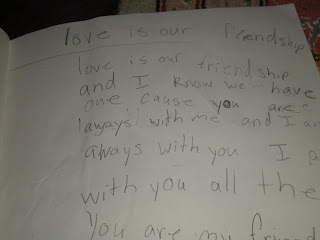 love is our friendship
love is our friendship
and I know we have
one cause you are
always with me and I am
always with you I a
with you all the
You are my friend